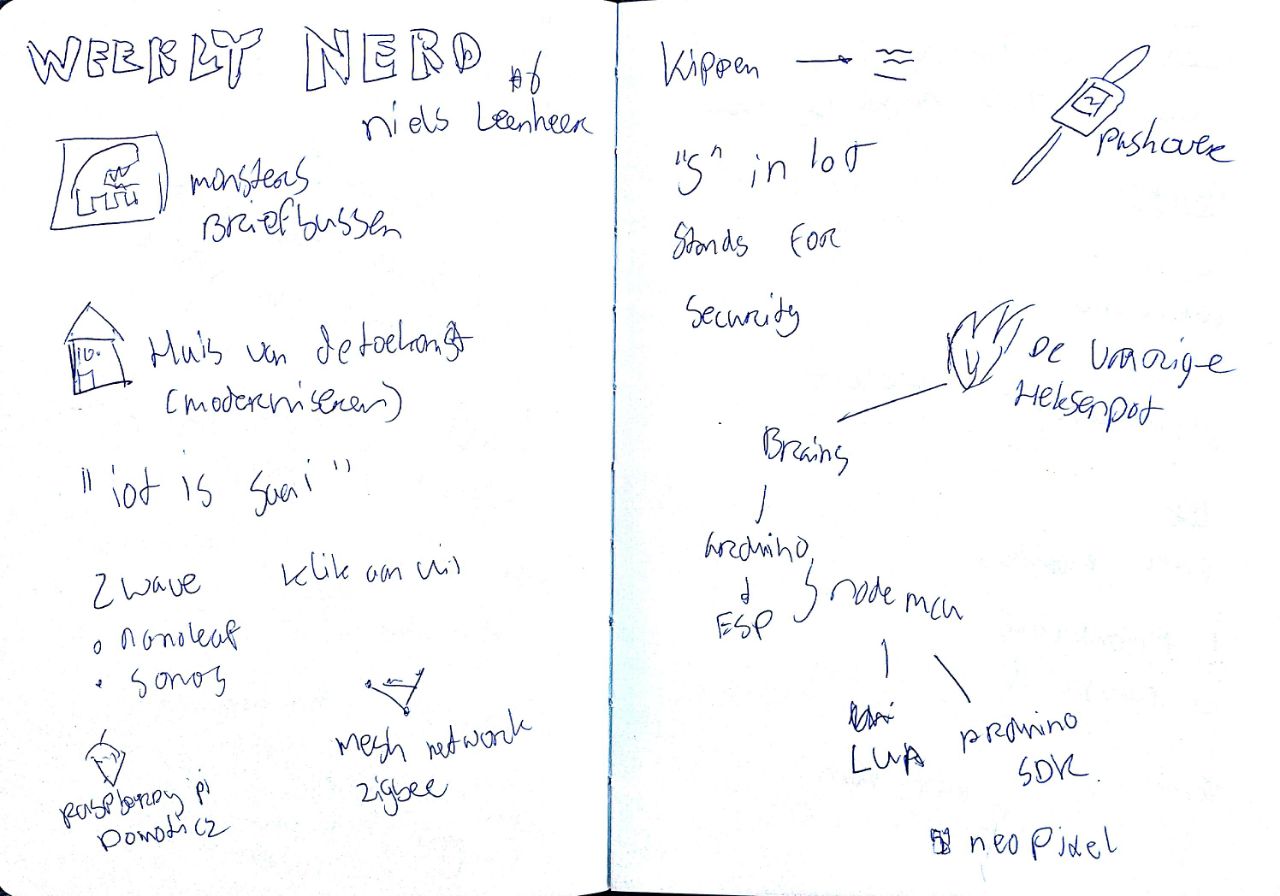 WEEKLY NERD #6
niels Leenheer
monsters
Briefbussen
Huis van de toekomst
(moderniseren)
"iot is saai"
Z wave
klik aan uit
nanoleaf
sonos
mesh network
zigbee
raspberry pi
Domoticz
Kippen →
pushover
"S" in IoT
Stands For
Security
De Vurige
Heksenpot
Brains
arduino
ESP
node mcu
LUA
Arduino
SDK.
neopixel